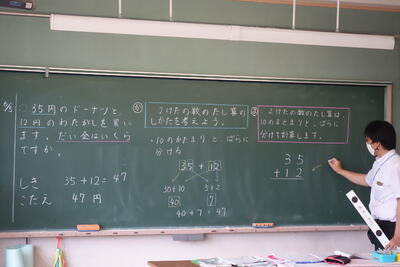 35円のドーナツと
12円のわたがしを買い
ます。だい金はいくら
ですか。
しき 35+12=47
こたえ 47円
2けたの数のたし算の
しかたを考えよう。
・10のかたまりと、ばらに
分ける
35+12
30+10 5+2
40 7
40+7=47
2けたの数のたし算は、
10のまとまりと、ばらに
分けて計算します。
35
+12